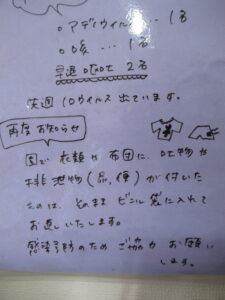 ○ アデノウイルス… 1名
○ 咳 … 1名
早退 嘔吐 2名
ウイルス 出ています。
再度 お知らせ
園で 衣類や 布団に、吐物や
排泄物(尿、便)が付いた
ものは、そのまま ビニル袋に入れて
お返しいたします。
感染予防のため ご協力 お願い
します。